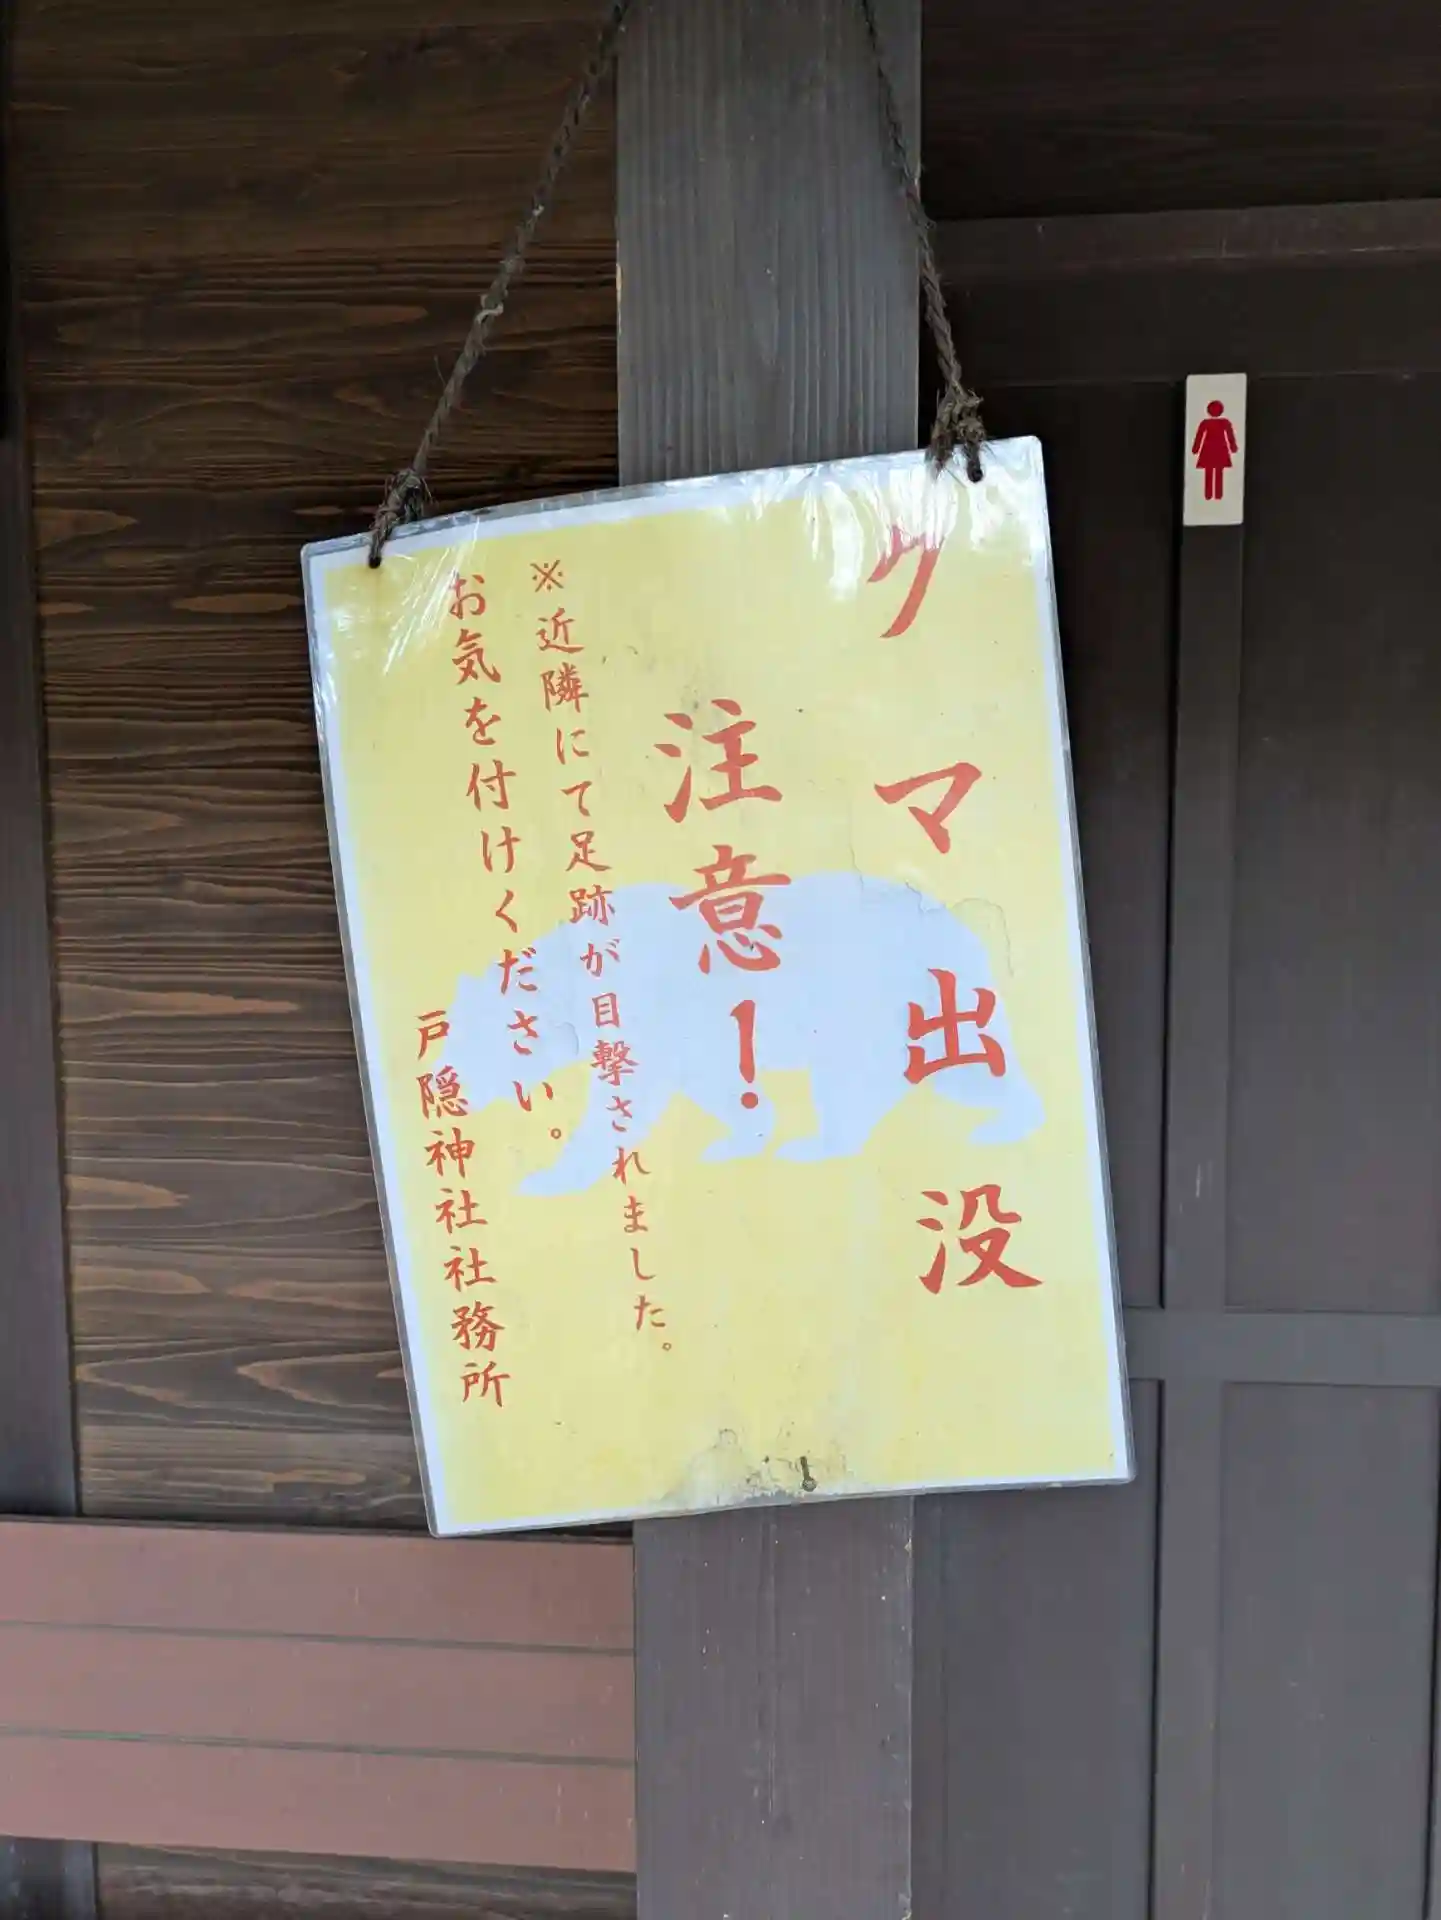 クマ出没
注意！
※近隣にて足跡が目撃されました。
お気を付けください。
戸隠神社社務所